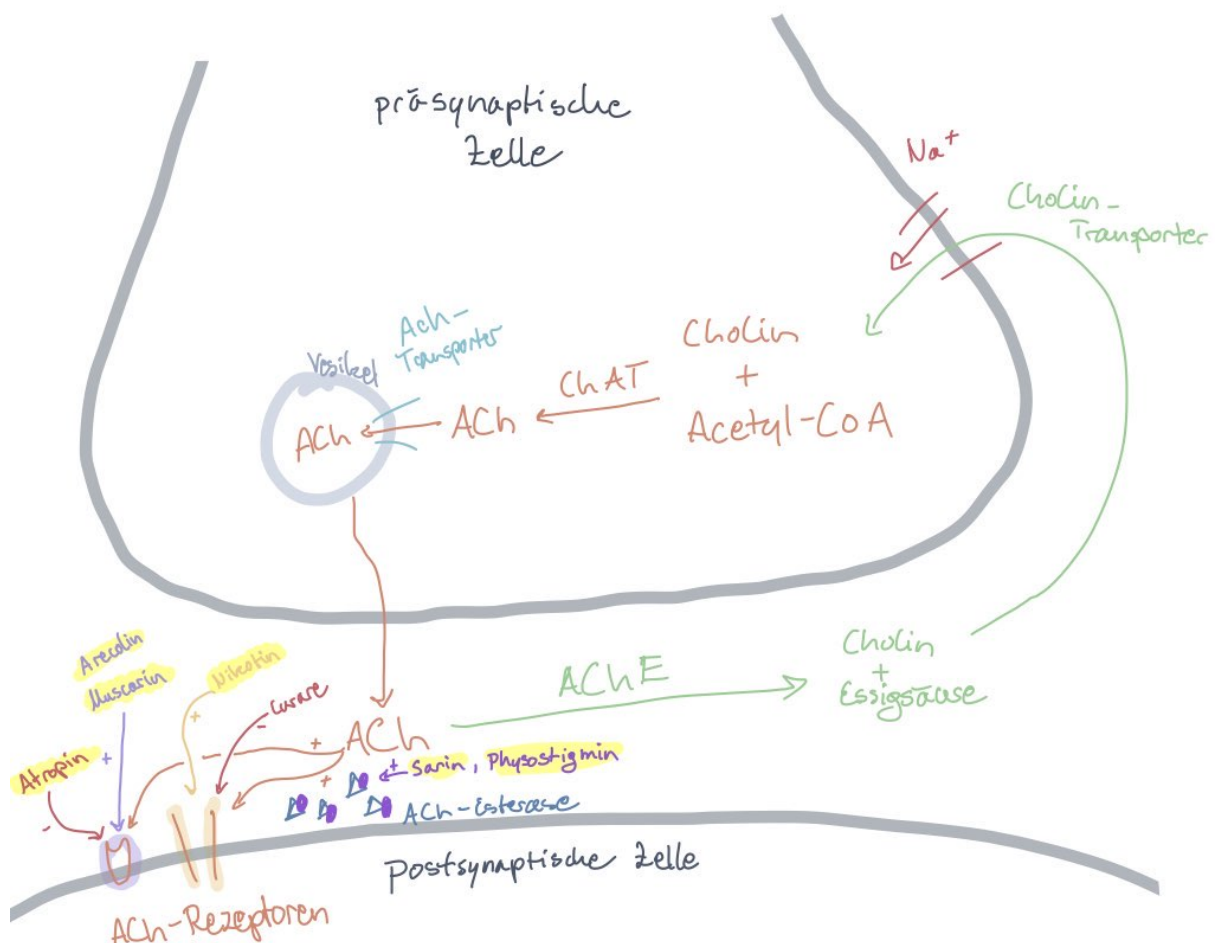 präsynaptische
Zelle
Na+
Cholin-
Transporter
Ach-
Transporter
Vesikel
Cholin
+
Acetyl-CoA
ChAT
ACh
ACh
Arecolin
Muscarin
Nikotin
Curare
Atropin
+
+
-
-
ACh
+
+
AChE
Cholin
+
Essigsäure
+ Sarin, Physostigmin
ACh-Esterase
postsynaptische Zelle
ACh-Rezeptoren